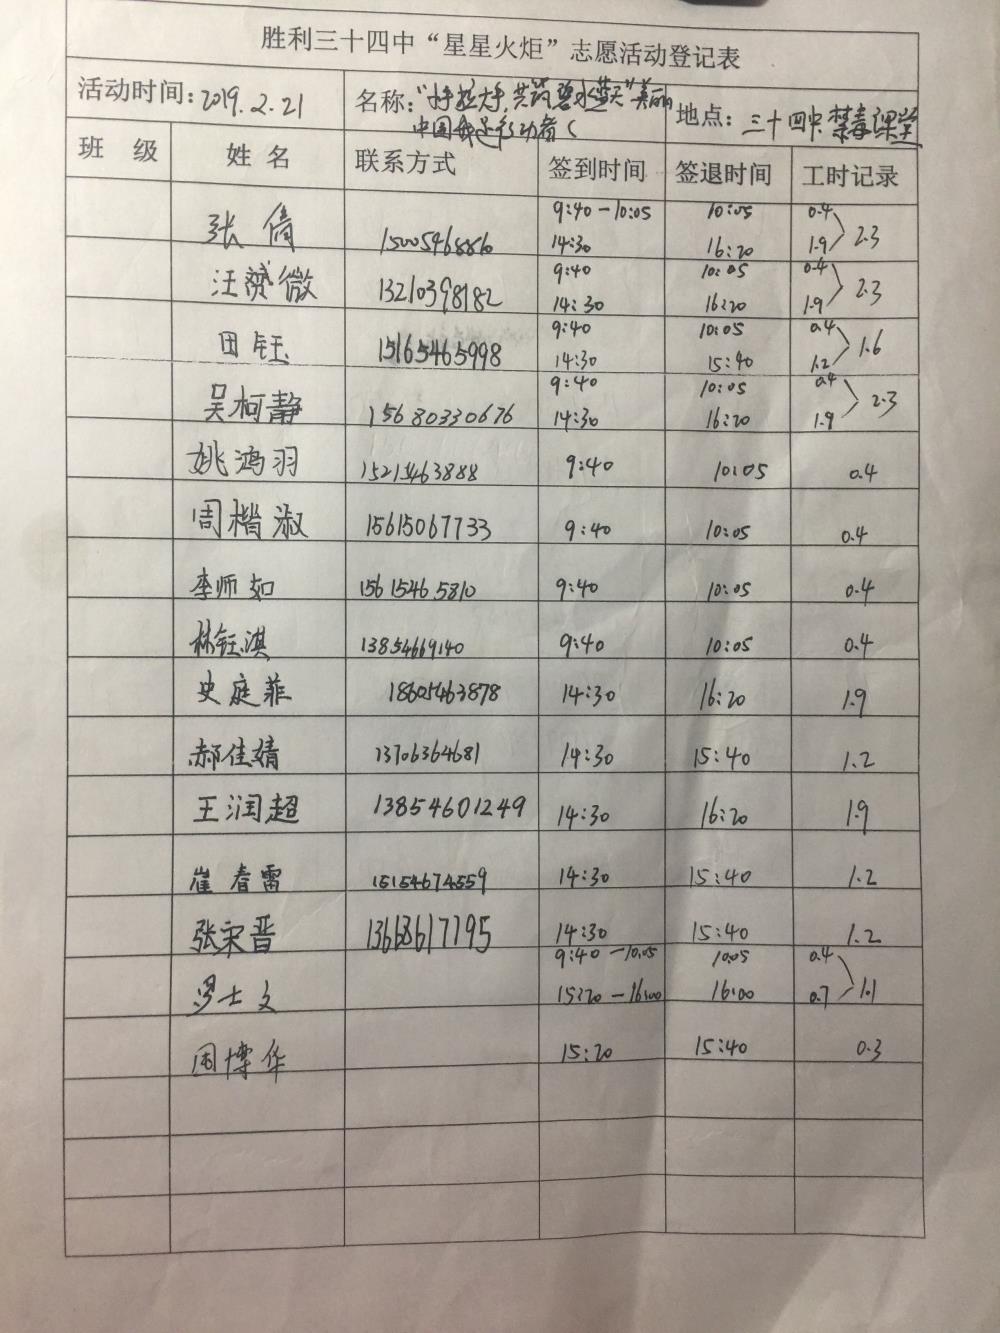 胜利三十四中“星星火炬”志愿活动登记表
活动时间：2019.2.21 名称：“手拉大手,共筑碧水蓝天”美丽 地点：三十四中.禁毒课堂
中国我是行动者（
班 级 姓 名 联系方式 签到时间 签退时间 工时记录
9:40－10:05 10:05 0.4
张倩 15005468860 14:30 16:20 1.9 2.3
9:40 10:05 0.4
汪赟微 13210398182 14:30 16:20 1.9 2.3
9:40 10:05 0.4
田钰 15165465998 14:30 15:40 1.2 1.6
9:40 10:05 0.4
吴柯静 15680330676 14:30 16:20 1.9 2.3
姚鸿羽 15215463888 9:40 10:05 0.4
周楷淑 15615067733 9:40 10:05 0.4
李师如 15615465810 9:40 10:05 0.4
林钰淇 13854669140 9:40 10:05 0.4
史庭菲 18605463878 14:30 16:20 1.9
郝佳婧 13706364681 14:30 15:40 1.2
王润超 13854601249 14:30 16:20 1.9
崔春雷 15154674559 14:30 15:40 1.2
张宋晋 13668617195 14:30 15:40 1.2
9:40－10:05 10:05 0.4
罗士文 15:20－16:00 16:00 0.7 1.1
周博华 15:20 15:40 0.3